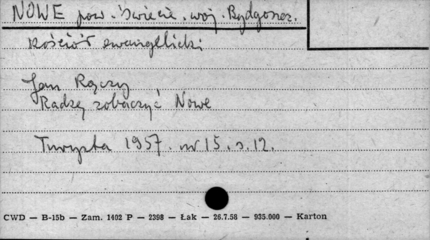 NOWE pow. Świecie, woj. Bydgoskie.
Kościół ewangelicki
Jan Rączy
Radzę zobaczyć Nowe
Turysta 1957. nr 15. s. 12.
CWD — B-15b — Zam. 1402 P — 2398 — Łak — 26.7.58 — 935.000 — Karton